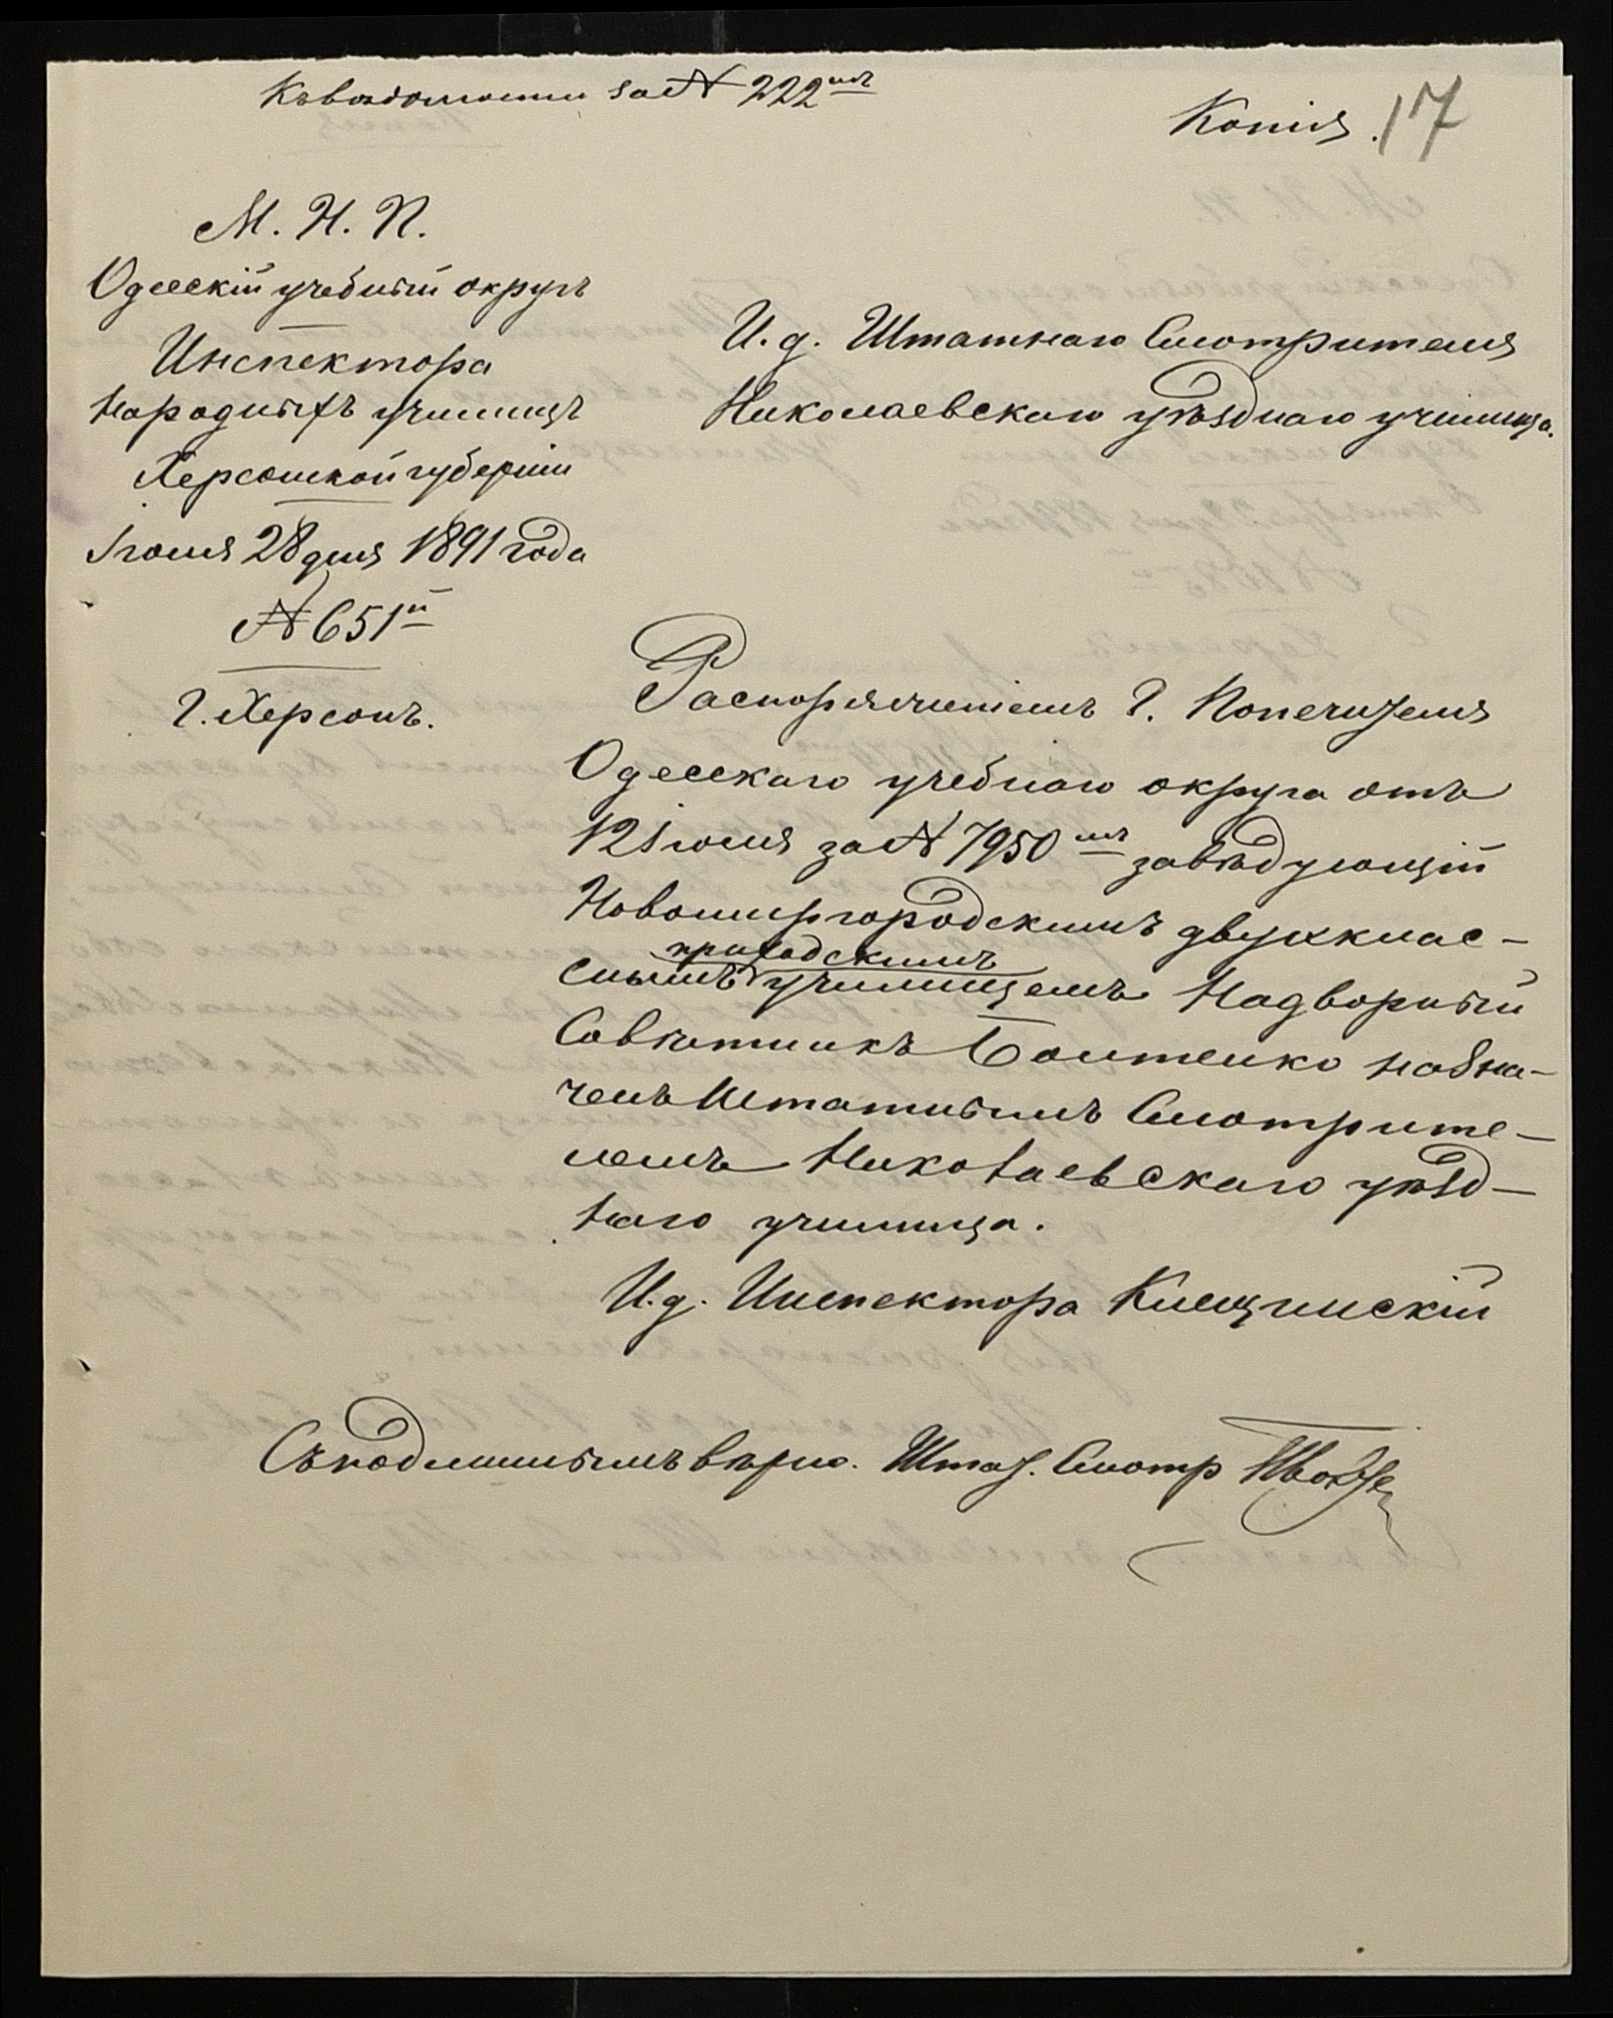 Къ вѣдомости за № 222мъ
Копія. 17
М. Н. П.
Одесскій учебный округъ
Инспектора
народныхъ училищъ
Херсонской губерніи
Іюня 28 дня 1891 года
№ 651й
Г. Херсонъ.
И. д. Штатнаго Смотрителя
Николаевскаго уѣзднаго училища.
Распоряженіемъ Г. Попечителя
Одесскаго учебнаго округа отъ
12 Іюня за № 7950мъ завѣдующій
Новомиргородскимъ двухклас-
приходскимъ
снымъ училищемъ Надворный
Совѣтникъ Болтенко назна-
ченъ Штатнымъ Смотрите-
лемъ Николаевскаго уѣзд-
наго училища.
И. д. Инспектора
Съ подлиннымъ вѣрно. Штат. Смотр